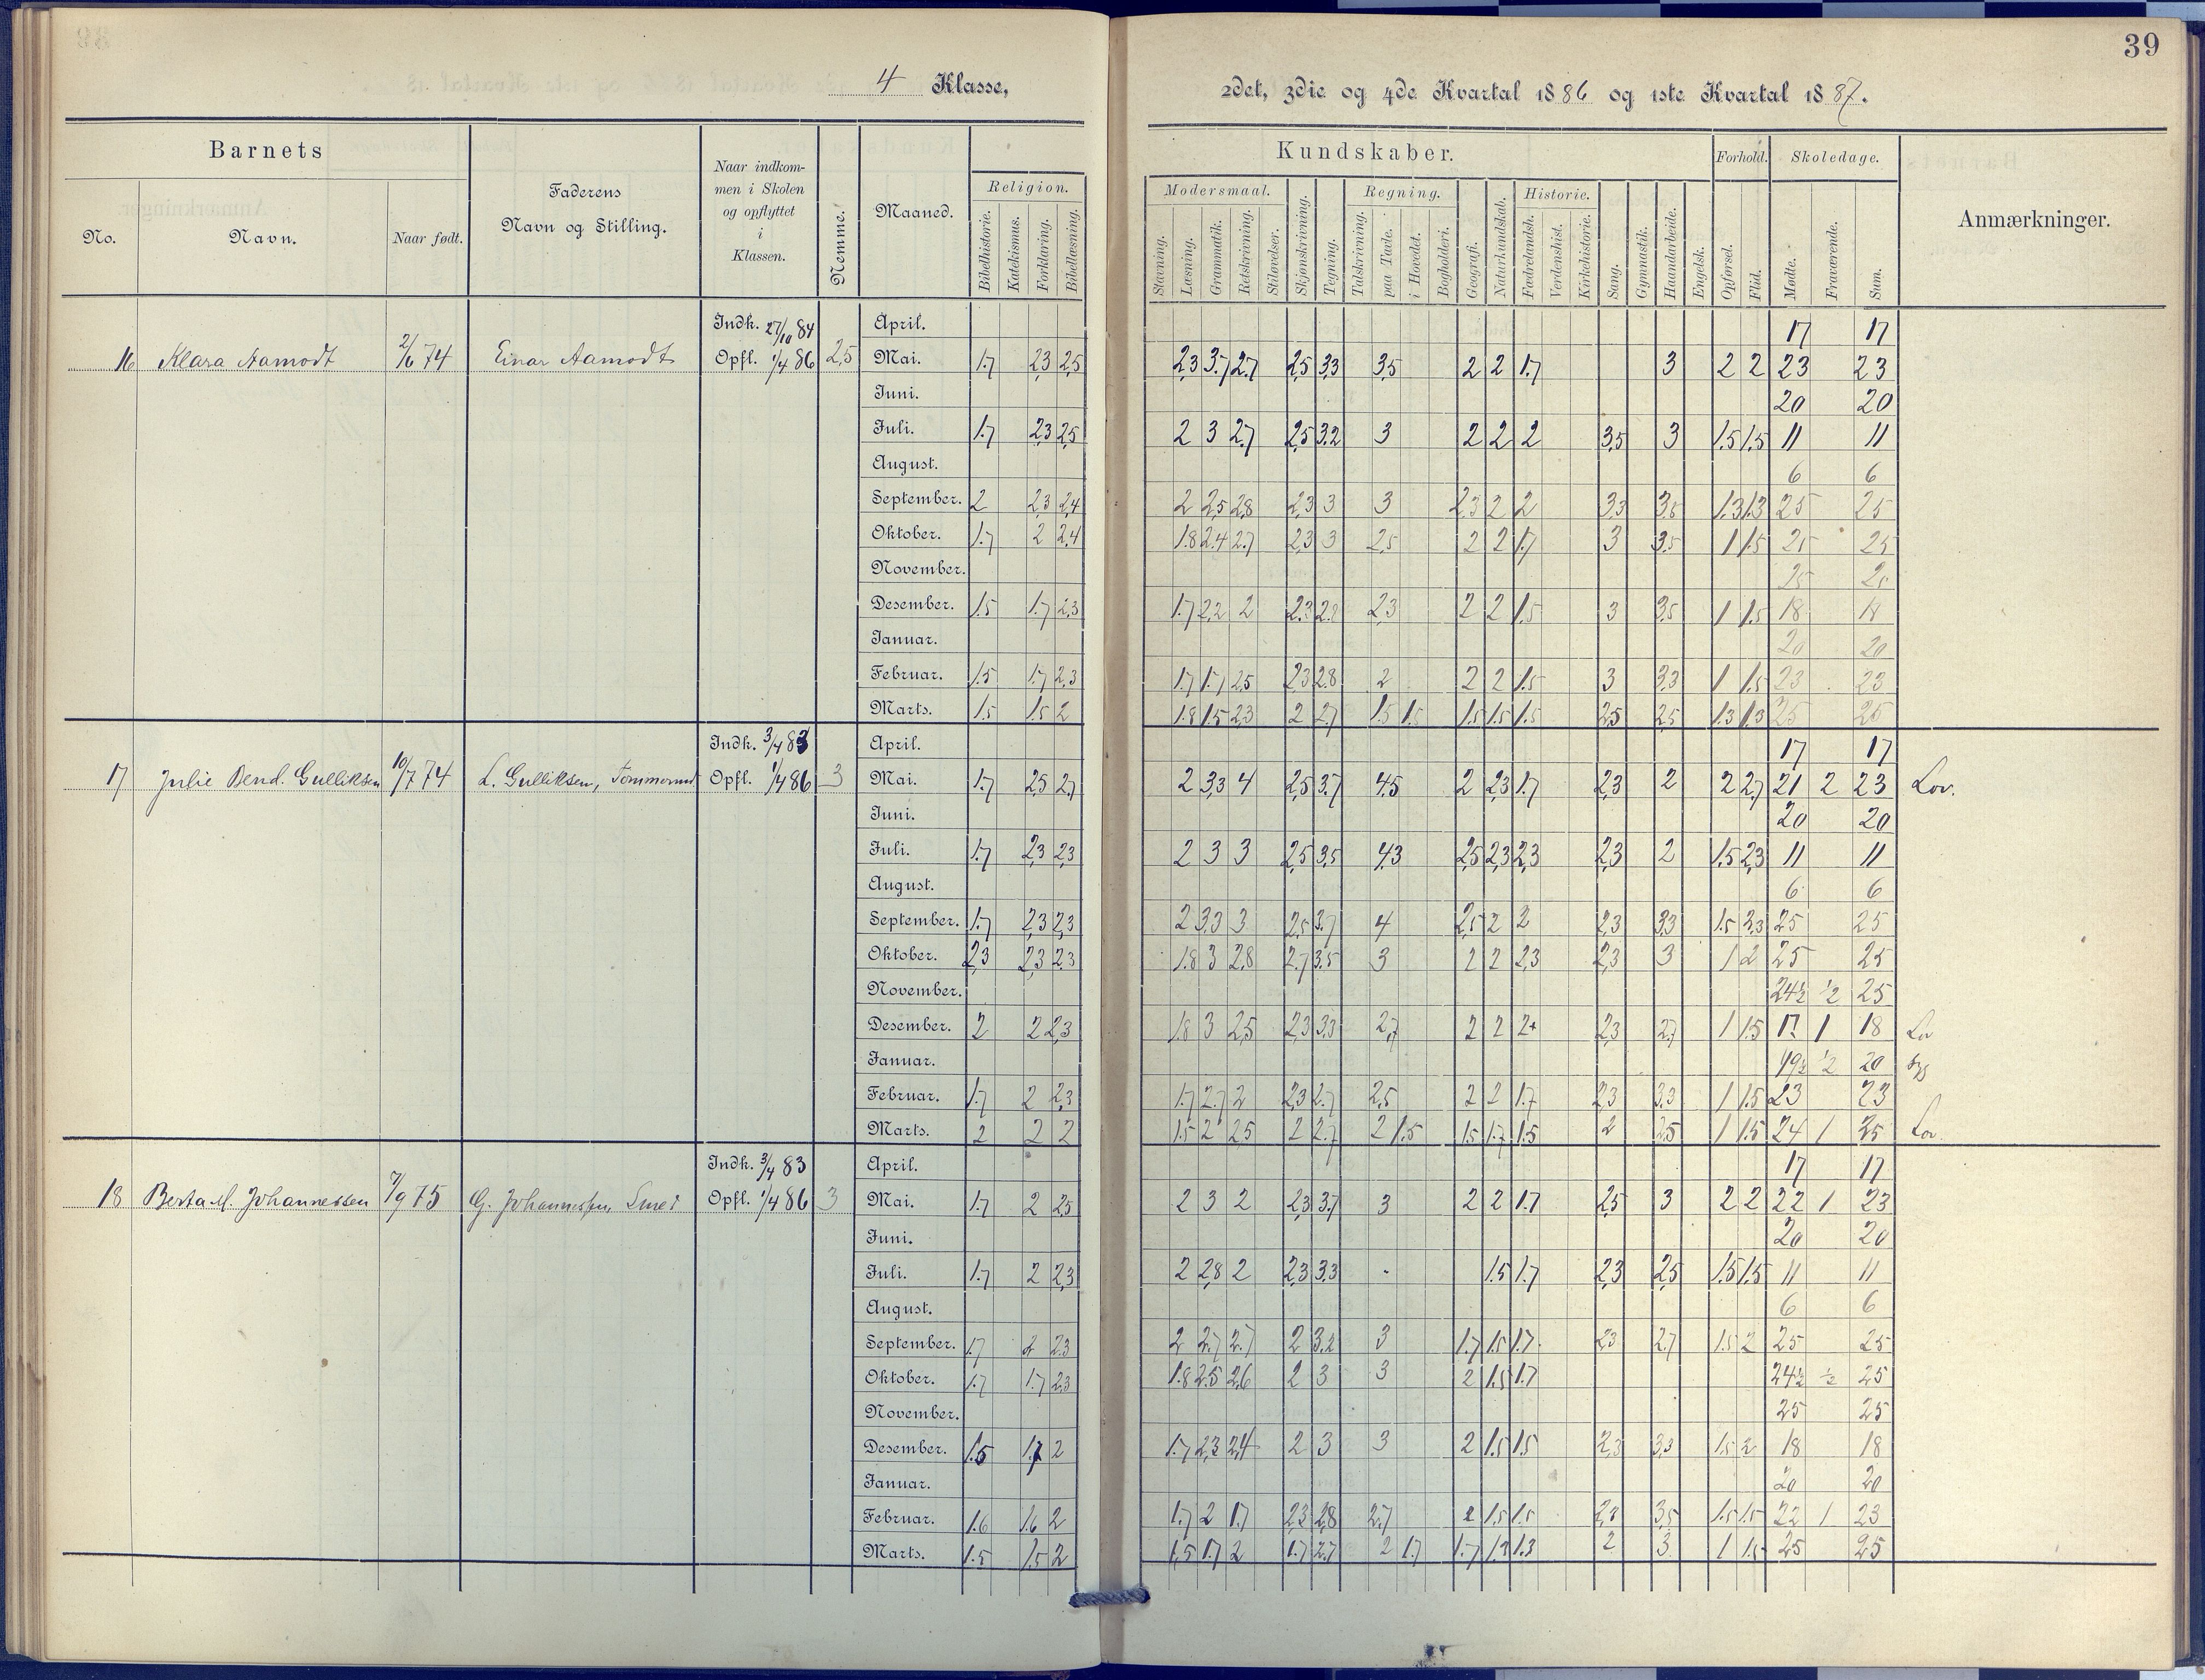 39
4 Klasse,
2det, 3die og 4de Kvartal 1886 og 1ste Kvartal 1887.
Barnets
No.
Navn.
Naar født.
Faderens
Navn og Stilling.
Naar indkom-
men i Skolen
og opflyttet
i
Klassen.
Nemme.
Maaned.
Religion.
Bibelhistorie.
Katekismus.
Forklaring.
Bibellæsning.
Kundskaber.
Modersmaal.
Stavning.
Læsning.
Grammatik.
Retskrivning.
Stiløvelser.
Skjønskrivning.
Tegning.
Regning.
Talskrivning.
paa Tavle.
i Hovedet.
Bogholderi.
Geografi.
Naturkundskab.
Historie.
Fædrelandsh.
Verdenshist.
Kirkehistorie.
Sang.
Gymnastik.
Haandarbeide.
Engelsk.
Forhold.
Opførsel.
Flid.
Skoledage.
Mødte.
Fraværende.
Sum.
Anmærkninger.
Indk. 27/10 84 April. 17 17
16 Klara Aamodt 74 Einar Aamodt Opfl. 1/4 86 2,5 Mai. 1.7 2,3 2,5 2,3 3.7 2.7 2,5 3,3 3,5 2 2 1.7 3 2 2 23 23
Juni. 20 20
Juli. 1.7 2,3 2,5 2 3 2.7 2,5 3.2 3 2 2 2 3,5 3 1.5 1.5 11 11
August. 6 6
September. 2 2,3 2,4 2 2,5 2,8 2,3 3 3 2,3 2 2 3,3 3,5 1.3 1.3 25 25
Oktober. 1.7 2 2,4 1.8 2.4 2.7 2,3 3 2,5 2 2 1.7 3 3.5 1 1.5 25 25
November. 25 25
Desember. 1.5 1.7 2,3 1.7 2,2 2 2,3 2.8 2,3 2 2 1.5 3 3,5 1 1.5 18 18
Januar. 20 20
Februar. 1.5 1.7 2,3 1.7 1.7 2,5 2,3 2.8 2 2 2 1.5 3 3,3 1 1.5 23 23
Marts. 1.5 1.5 2 1.8 1.5 2,3 2 2.7 1.5 1.5 1.5 1.5 1.5 2,5 2,5 1.3 1.3 25 25
Indk. 3/4 83 April. 17 17
17 Julie Bend. Gulliksen 10/7 74 L. Gulliksen, Tømmermd Opfl. 1/4 86 3 Mai. 1.7 2,5 2.7 2 3,3 4 2,5 3.7 4.5 2 2,3 1.7 2,3 2 2 2.7 21 2 23 Lov.
Juni. 20 20
Juli. 1.7 2,3 2,3 2 3 3 2,5 3,5 4.3 2,5 2,3 2,3 2,3 2 1.5 2,3 11 11
August. 6 6
September. 1.7 2,3 2,3 2 3,3 3 2,5 3.7 4 2,5 2 2 2,3 3,3 1.5 2,3 25 25
Oktober. 2,3 2,3 2,3 1.8 3 2.8 2.7 3.5 3 2 2 2,3 2,3 3 1 2 25 25
November. 24½ ½ 25
Desember. 2 2 2,3 1.8 3 2,5 2,3 3,3 2,7 2 2 2+ 2,3 2,7 1 1.5 17 1 18 Lov
Januar. 19½ ½ 20 Syg
Februar. 1.7 2 2,3 1.7 2.7 2 2,3 2.7 2,5 2 2 1.7 2,3 3,3 1 1.5 23 23
Marts. 2 2 2 1.5 2 2,5 2 2.7 2 1.5 1.5 1.7 1.5 2 2.5 1 1.5 24 1 25 Lov.
Indk. 3/4 83 April. 17 17
18 Berta M. Johannessen 7/9 75 G. Johannessen, Smed Opfl. 1/4 86 3 Mai. 1.7 2 2,5 2 3 2 2,3 3.7 3 2 2 1.7 2,5 3 2 2 22 1 23
Juni. 20 20
Juli. 1.7 2 2,3 2 2,8 2 2,3 3,3 - 1.5 1.7 2,3 2,5 1.5 1.5 11 11
August. 6 6
September. 1.7 2 2,3 2 2.7 2.7 2 3.2 3 1.7 1.5 1.7 2,3 2,7 1.5 2 25 25
Oktober. 1.7 1.7 2,3 1.8 2.5 2,6 2 3 3 2 1.5 1.7 24½ ½ 25
November. 25 25
Desember. 1.5 1.7 2 1.7 2,3 2,4 2 3 3 2 1.5 1.5 2,3 3,3 1.5 2 18 18
Januar. 20 20
Februar. 1.6 1.6 2 1.7 2 1.7 2,3 2,8 2.7 2 1.5 1.5 2,3 3,5 1.5 1.5 22 1 23
Marts. 1.5 1.5 2 1.5 1.7 2 1.7 2.7 2 1.7 1.7 1.3 1.3 2 3 1 1.5 25 25